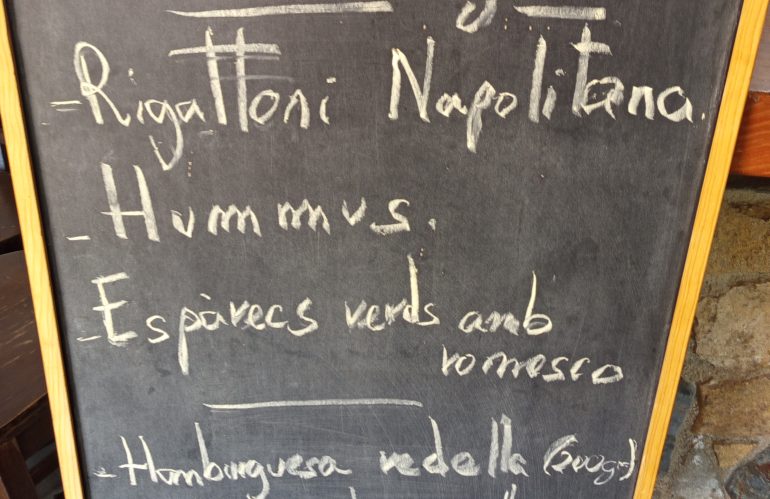 - Rigattoni Napolitana.
- Hummus.
- Espàrecs verds amb
romesco
- Hamburguesa vedella (200gr)